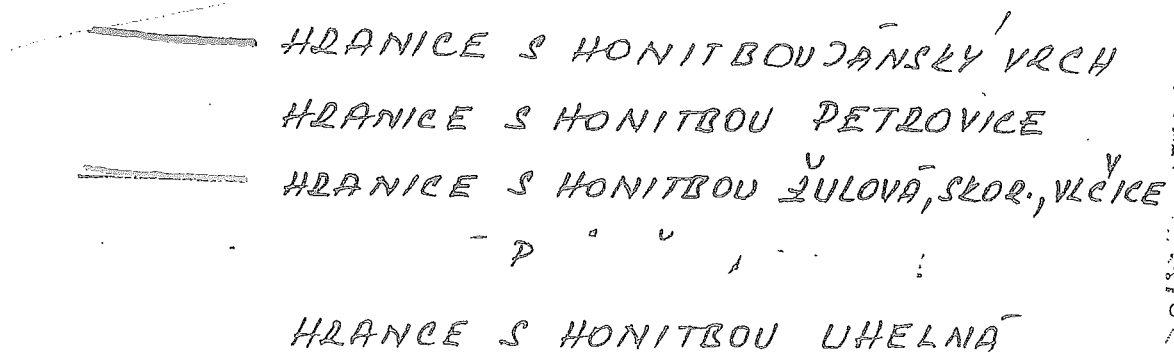 HRANICE S HONITBOU JÁNSKÝ VRCH
HRANICE S HONITBOU PETROVICE
HRANICE S HONITBOU ŽULOVÁ, SKOR., VLČICE
HRANCE S HONITBOU UHELNÁ